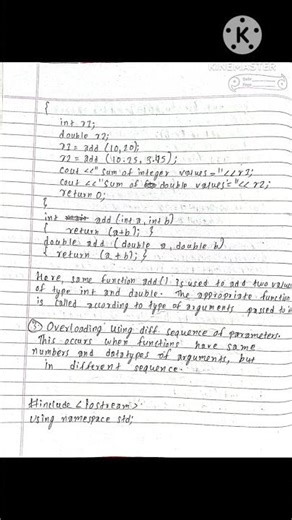 K
KINEMASTER
Date
Page
{
int r1;
double r2;
r1 = add (10,10);
r2 = add (10.25, 3.45);
cout <<" sum of integer values ="<<r1;
cout <<"sum of double values ="<< r2;
return 0;
}
int add (int a, int b)
{ return (a+b); }
double add (double a, double b)
{ return (a+b); }
Here, same function add() is used to add two values
of type int and double. The appropriate function
is called according to type of arguments passed to it
③ Overloading using diff sequence of parameters.
This occurs when functions have same
numbers and datatypes of arguments, but
in different sequence.
#include <iostream>
using namespace std;